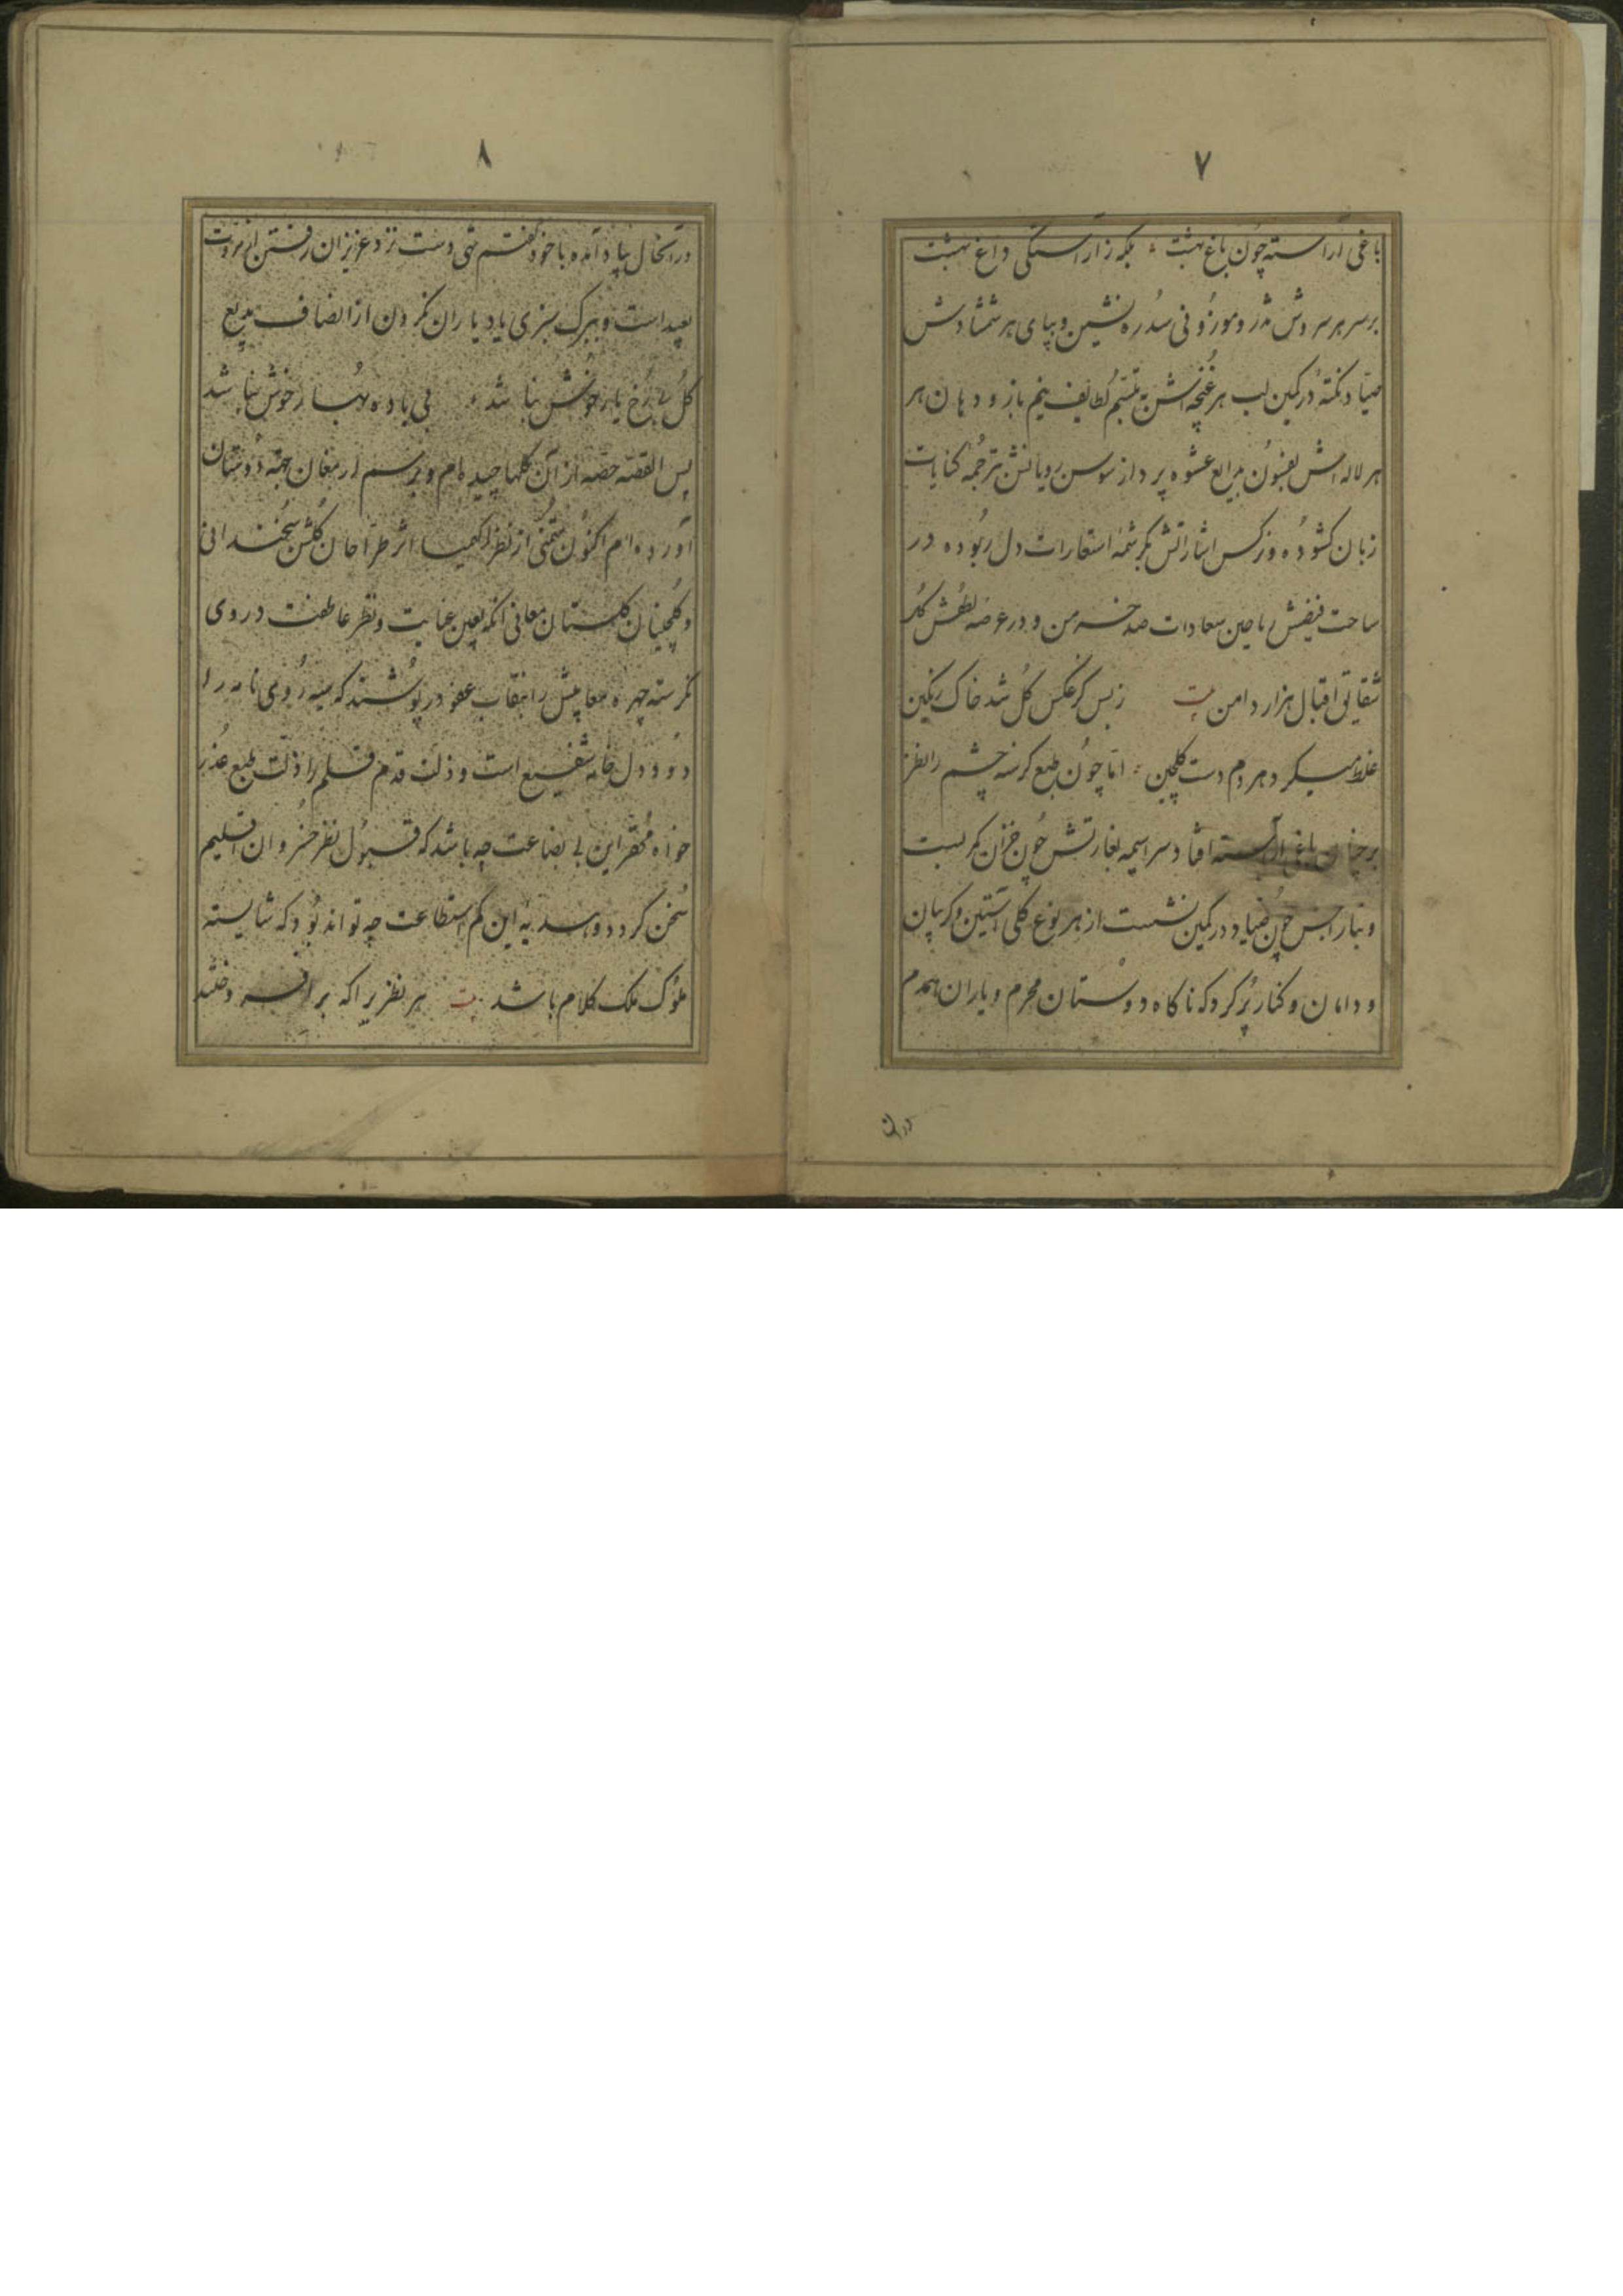 ۷
باغی آراسته چون باغ بهشت بلکه ز آراستگی داغ بهشت
بر سر هر سروش موزونی سدره نشین و بپای هر شمشادش
صیاد نکته در کمین لب هر غنچه اش به تبسم لطایف نیم باز و دهان هر
هر لاله اش بفنون بدایع عشوه پرداز سوسن رویانش ترجمه کنایات
زبان کشوده و نرکس اشاراتش بکرشمه استعارات دل ربوده در
ساحت فیضش ریاحین سعادات صد خرمن و در عرصه لطفش کل
شقایق اقبال هزار دامن بیت زبس کز عکس کل شد خاک رنکین
غلط میکرد هر دم دست کلچین اما چون طبع کرسنه چشم را نظر
بر چنان باغی آراسته افتاد سراسیمه بغارتش چون خزان کمر بست
و بتاراجش چون صیاد در کمین نشست از هر نوع کلی آستین و کریبان
و دامان و کنار پر کرد که ناکاه دوستان محرم و یاران همدم
۸
در آنحال بیاد آمده با خود کفتم تهی دست نزد عزیزان رفتن از مروت
بعید است و ببرک سبزی یاد یاران نکردن از انصاف بدیع
کل بی رخ یار خوش نباشد بی باده بهار خوش نباشد
پس القصه حصه از آن کلها چیده ام و برسم ارمغان بجهة دوستان
آورده ام اکنون متمنی از نظر کیمیا اثر طراحان کلشن سخندانی
و کلچینان کلستان معانی آنکه بعین عنایت و نظر عاطفت در وی
نکرسته چهره معایبش را بنقاب عفو در پوشند که سیه روی نامه را
دود دل خامه شفیع است و ذلت قدم قلم را ذلت طبع عذر
خواه محقر این بی بضاعت چه باشد که قبول نظر خسروان اقلیم
سخن کردد و هدیه این کم استطاعت چه تواند بود که شایسته
ملوک ملک کلام باشد بیت هر نظری را که بر افروختند